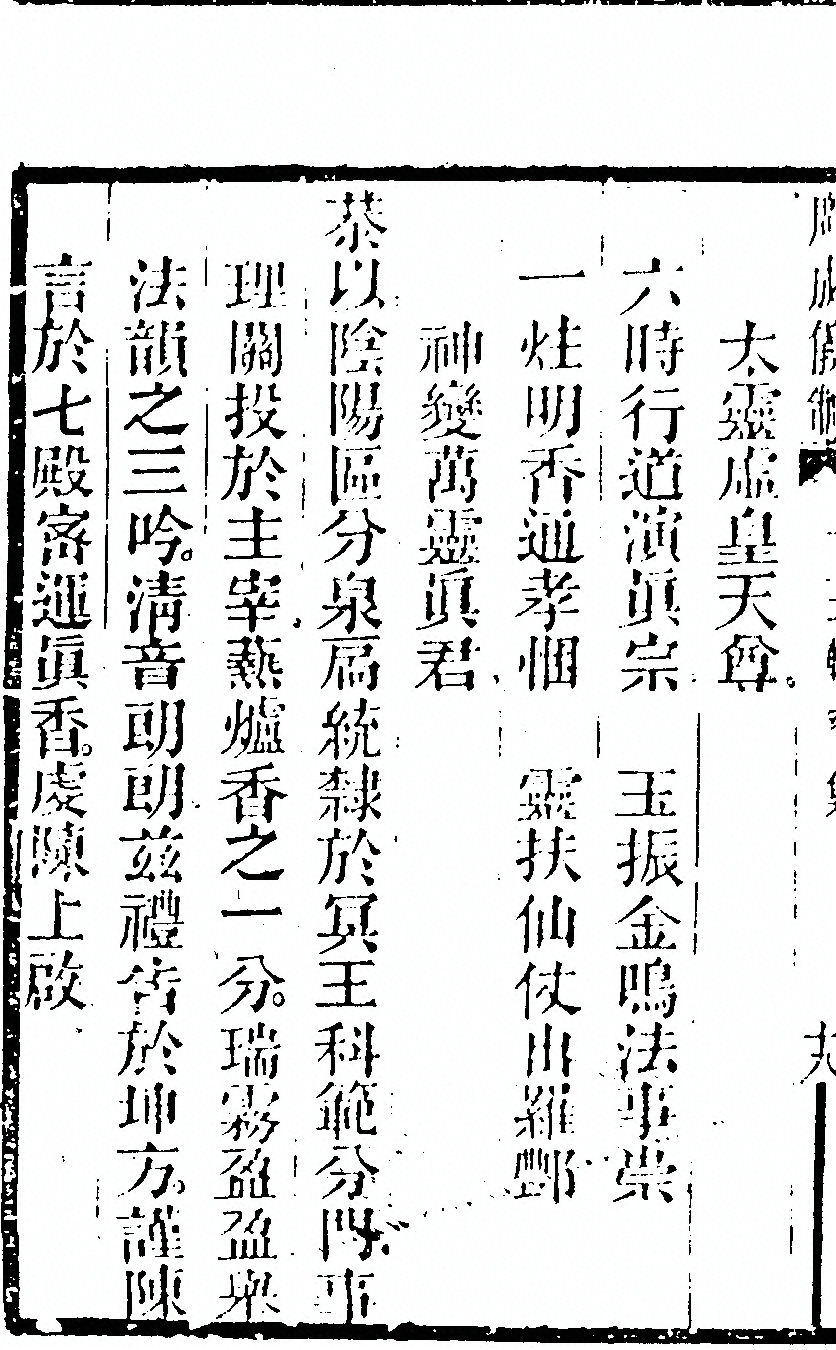 太靈虛皇天尊。
六時行道演眞宗　玉振金鳴法事崇
一炷明香通孝悃　靈扶仙仗出羅酆
神變萬靈眞君
恭以陰陽區分泉扃統隸於冥王科範分門事
理關投於主宰爇爐香之一分。瑞霧盈盈舉
法韻之三吟。清音朗朗兹禮告於坤方。謹陳
言於七殿密運眞香。虔陳上啟